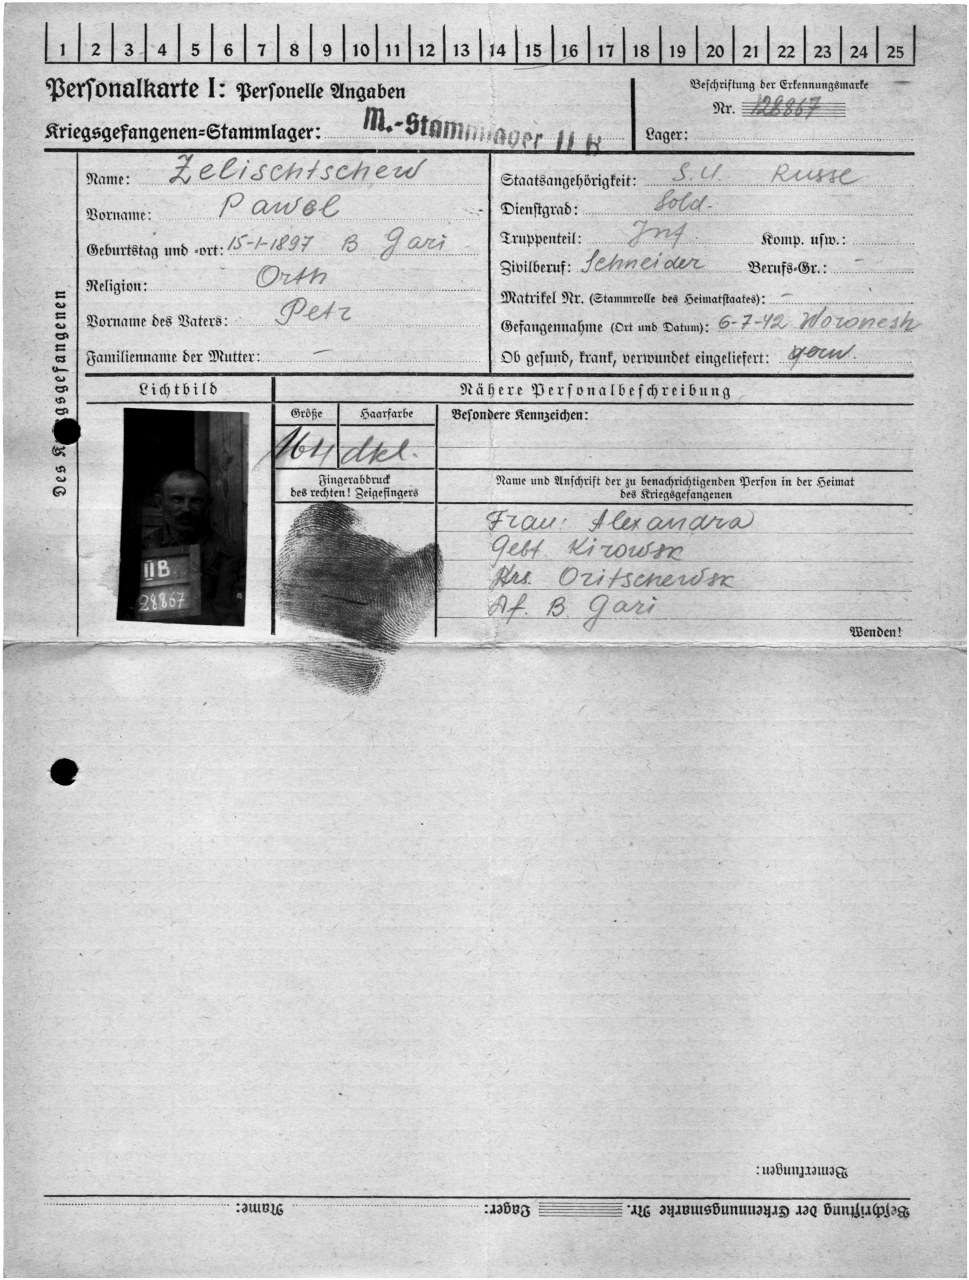 1 2 3 4 5 6 7 8 9 10 11 12 13 14 15 16 17 18 19 20 21 22 23 24 25
Personalkarte I: Personelle Angaben
Beschriftung der Erkennungsmarke
Nr. 128867
Kriegsgefangenen-Stammlager: M.-Stammlager II B
Lager:
Des Kriegsgefangenen
Name: Zelischtschew
Vorname: Pawel
Geburtstag und -ort: 15-1-1897 B Gari
Religion: Orth
Vorname des Vaters: Petr
Familienname der Mutter: -
Staatsangehörigkeit: S.U. Russe
Dienstgrad: Sold.
Truppenteil: Inf Komp. usw.:
Zivilberuf: Schneider Berufs-Gr.: -
Matrikel Nr. (Stammrolle des Heimatstaates): -
Gefangennahme (Ort und Datum): 6-7-42 Woronesh
Ob gesund, krank, verwundet eingeliefert:
Lichtbild
Nähere Personalbeschreibung
Größe Haarfarbe
164 dkl.
Besondere Kennzeichen:
Fingerabdruck
des rechten! Zeigefingers
Name und Anschrift der zu benachrichtigenden Person in der Heimat
des Kriegsgefangenen
Frau: Alexandra
Gebt. Kirowsk
Krs. Oritschewsk
Af. B. Gari
IIB
28867
Wenden!
Bemerkungen:
Beschriftung der Erkennungsmarke Nr. Lager: Name: